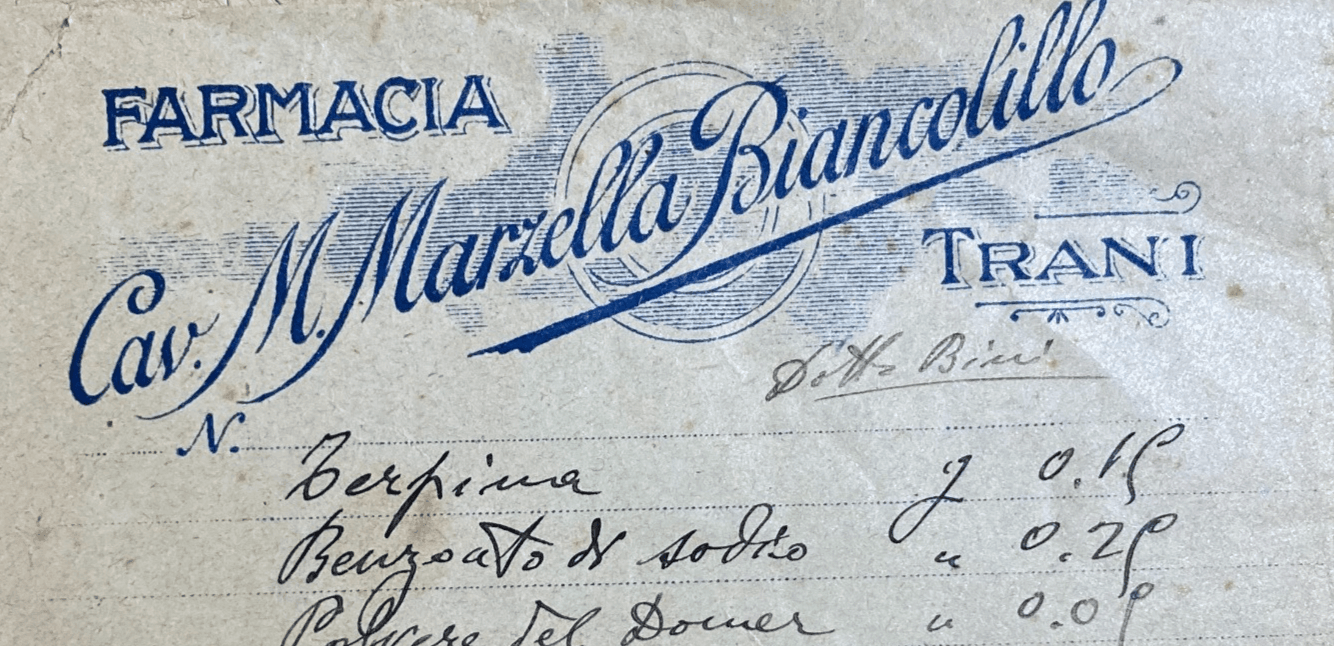 FARMACIA
Cav. M. Marzella Biancolillo
TRANI
Dott. Bini
N.
Terpina g 0.15
Benzoato di sodio " 0.25
Polvere del Dower " 0.05